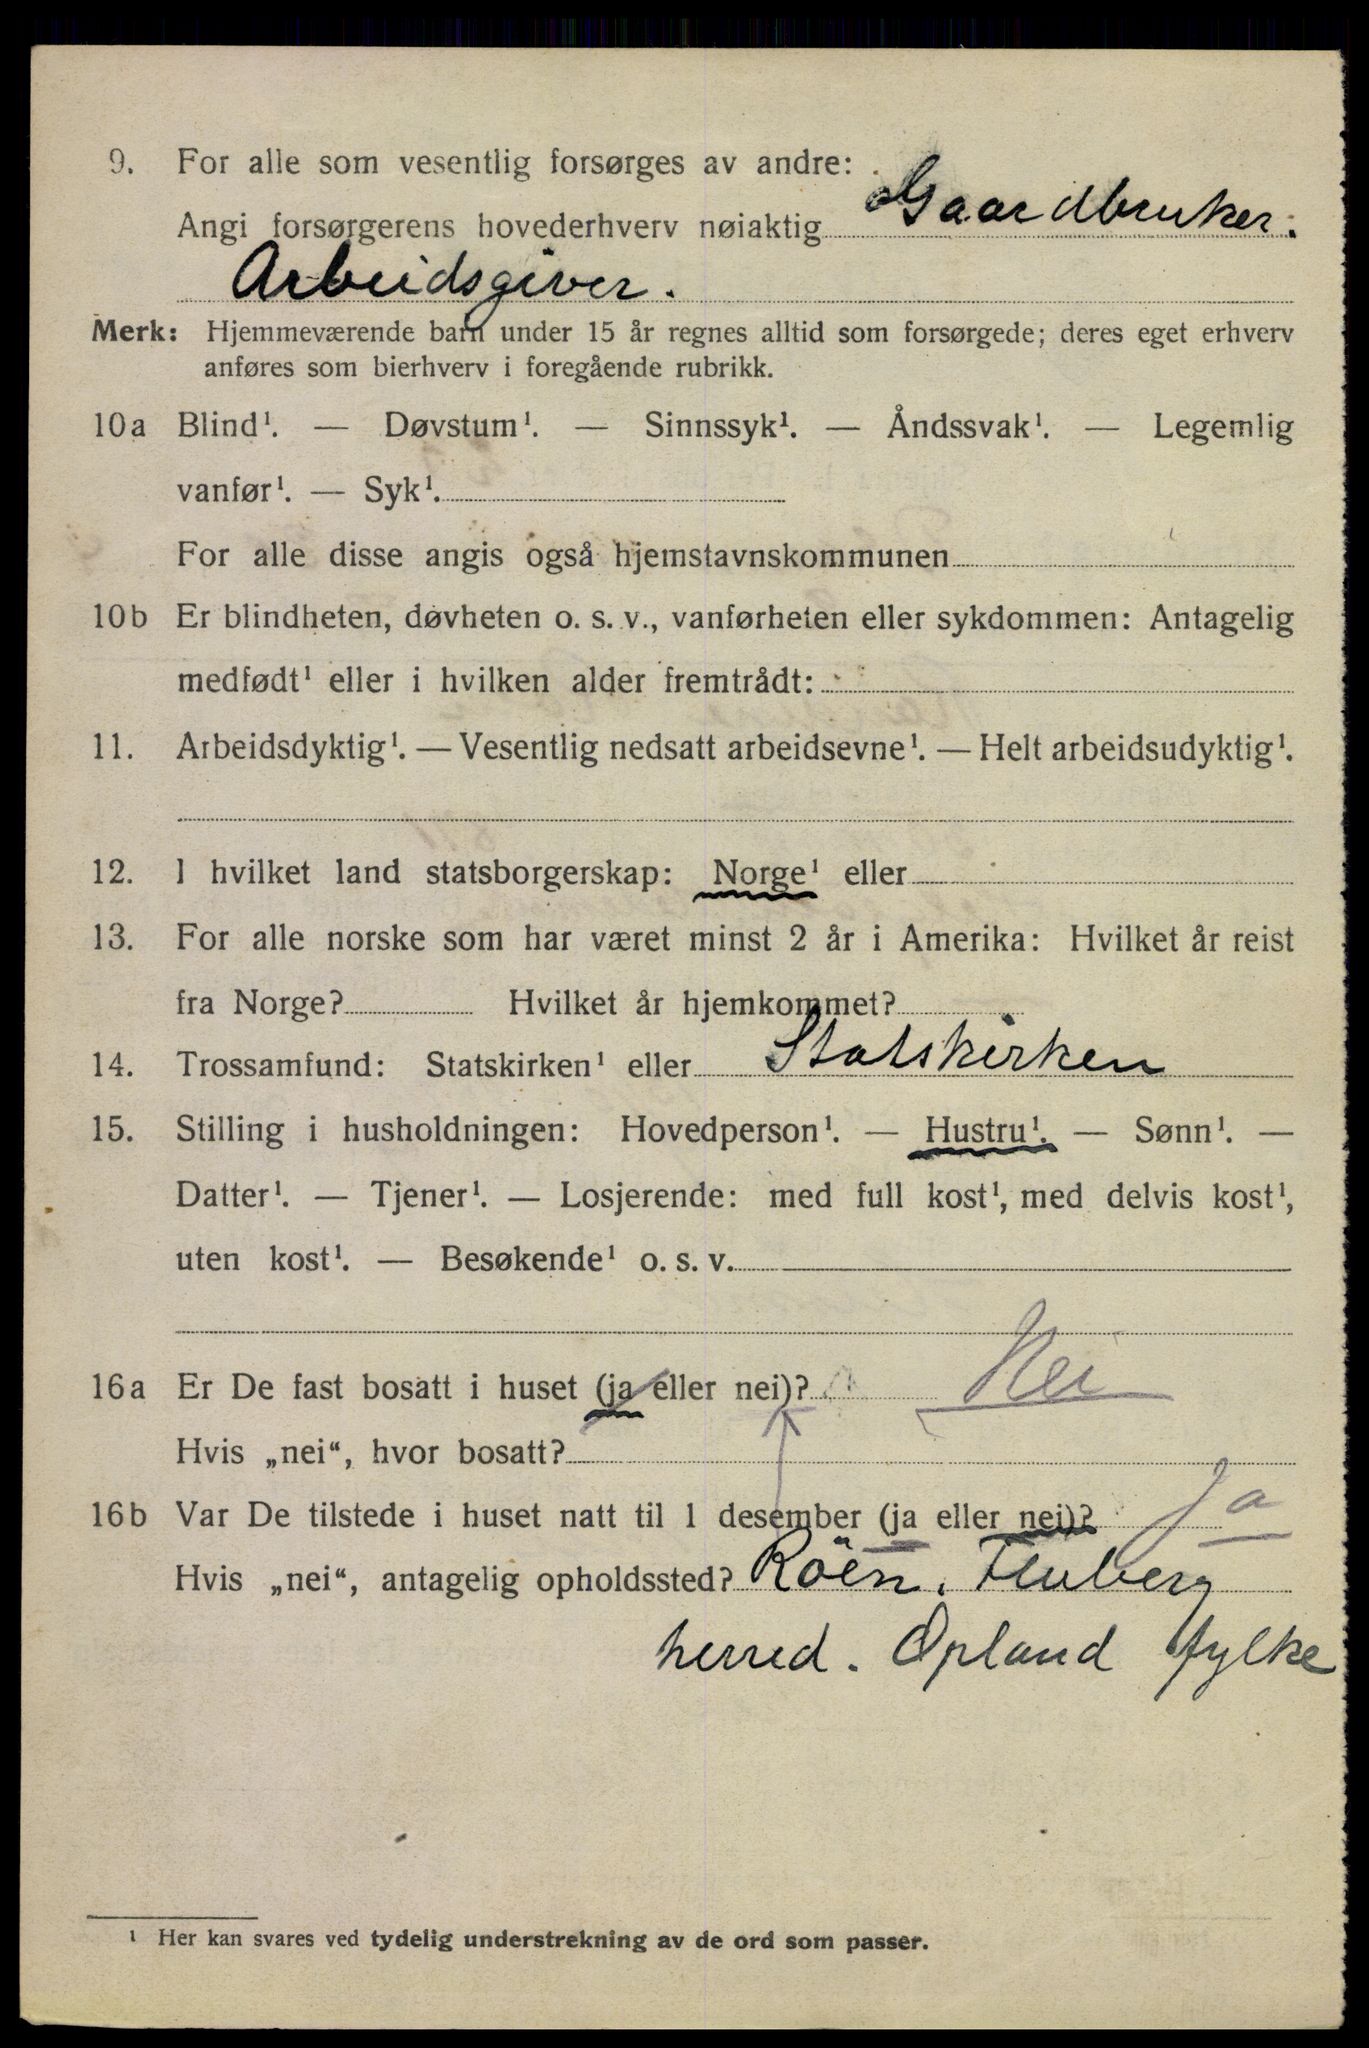 9. For alle som vesentlig forsørges av andre:
Angi forsørgerens hovederhverv nøiaktig Gaardbruker.
Arbeidsgiver.
Merk: Hjemmeværende barn under 15 år regnes alltid som forsørgede; deres eget erhverv
anføres som bierhverv i foregående rubrikk.
10a Blind¹. — Døvstum¹. — Sinnssyk¹. — Åndssvak¹. — Legemlig
vanfør¹. — Syk¹.
For alle disse angis også hjemstavnskommunen
10b Er blindheten, døvheten o. s. v., vanførheten eller sykdommen: Antagelig
medfødt¹ eller i hvilken alder fremtrådt:
11. Arbeidsdyktig¹. — Vesentlig nedsatt arbeidsevne¹. — Helt arbeidsudyktig¹.
12. I hvilket land statsborgerskap: Norge¹ eller
13. For alle norske som har været minst 2 år i Amerika: Hvilket år reist
fra Norge? Hvilket år hjemkommet?
14. Trossamfund: Statskirken¹ eller Statskirken
15. Stilling i husholdningen: Hovedperson¹. — Hustru¹. — Sønn¹. —
Datter¹. — Tjener¹. — Losjerende: med full kost¹, med delvis kost¹,
uten kost¹. — Besøkende¹ o. s. v.
16a Er De fast bosatt i huset (ja eller nei)? Nei
Hvis „nei“, hvor bosatt?
16b Var De tilstede i huset natt til 1 desember (ja eller nei)? Ja
Hvis „nei“, antagelig opholdssted? Röen. Fluberg
herred. Opland fylke
¹ Her kan svares ved tydelig understrekning av de ord som passer.